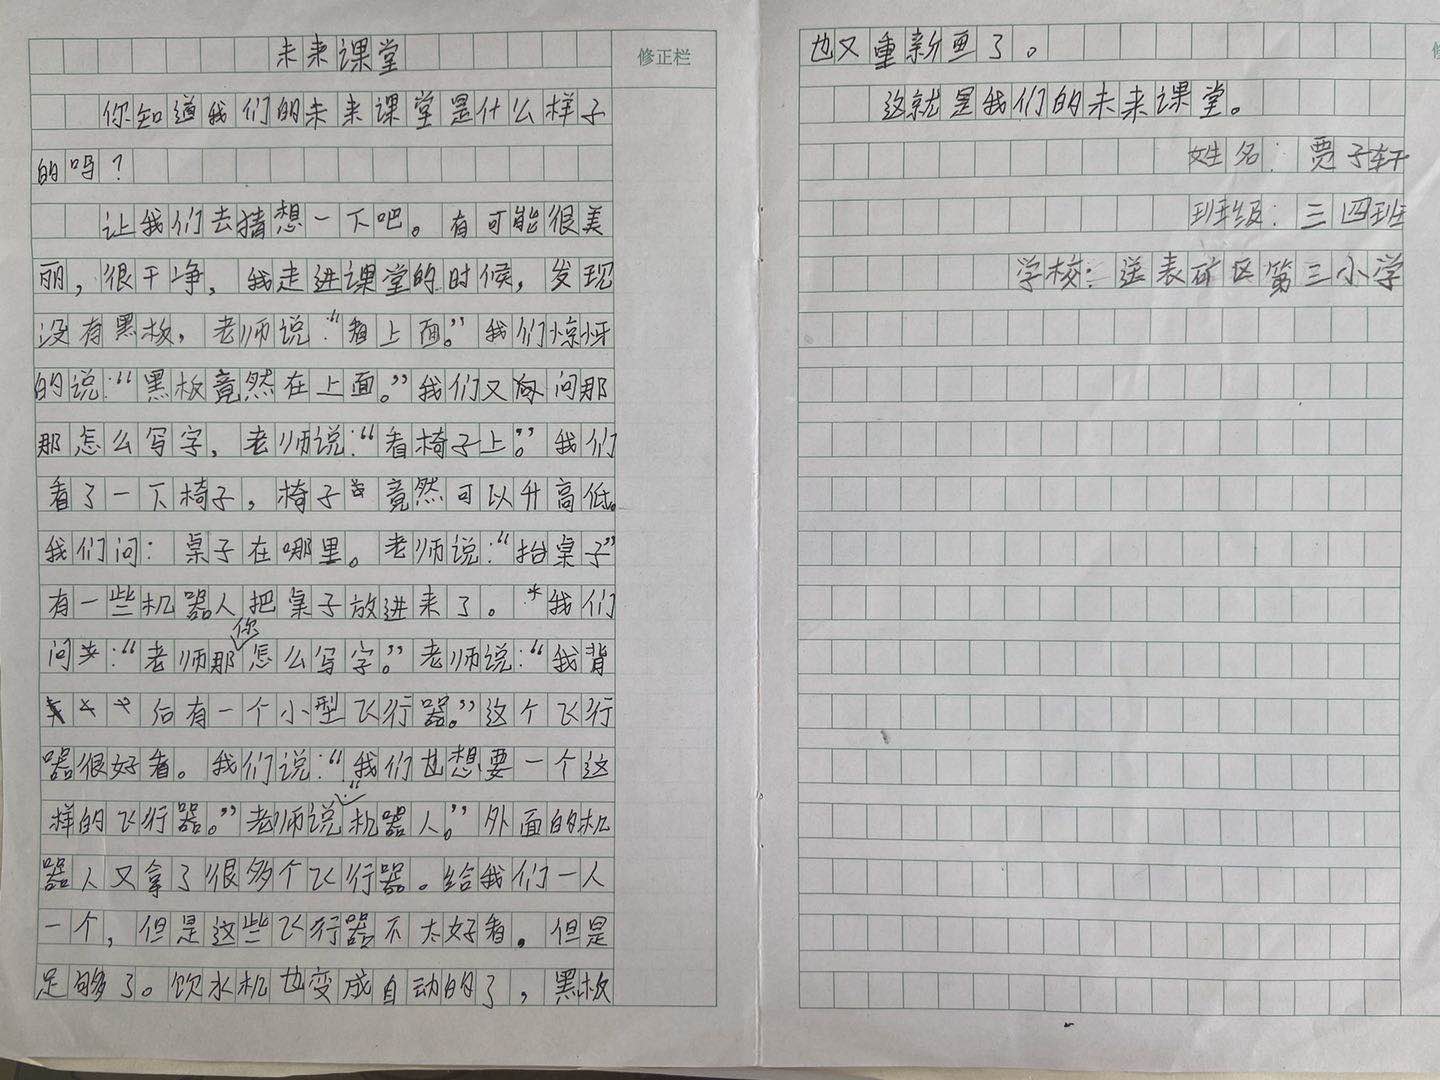 未来课堂
修正栏
你知道我们的未来课堂是什么样子
的吗？
让我们去猜想一下吧。有可能很美
丽，很干净，我走进课堂的时候，发现
没有黑板，老师说：“看上面。”我们惊讶
的说：“黑板竟然在上面。”我们又问那
那怎么写字，老师说：“看椅子上。”我们
看了一下椅子，椅子竟然可以升高低。
我们问：桌子在哪里。老师说：“抬桌子”
有一些机器人把桌子放进来了。我们
问：“老师那你怎么写字。”老师说：“我背
后有一个小型飞行器。”这个飞行
器很好看。我们说：“我们也想要一个这
样的飞行器。”老师说：“机器人。”外面的机
器人又拿了很多个飞行器。给我们一人
一个，但是这些飞行器不太好看。但是
足够了。饮水机也变成自动的了，黑板
也又重新画了。
这就是我们的未来课堂。
姓名：贾子轩
班级：三四班
学校：送表矿区第三小学